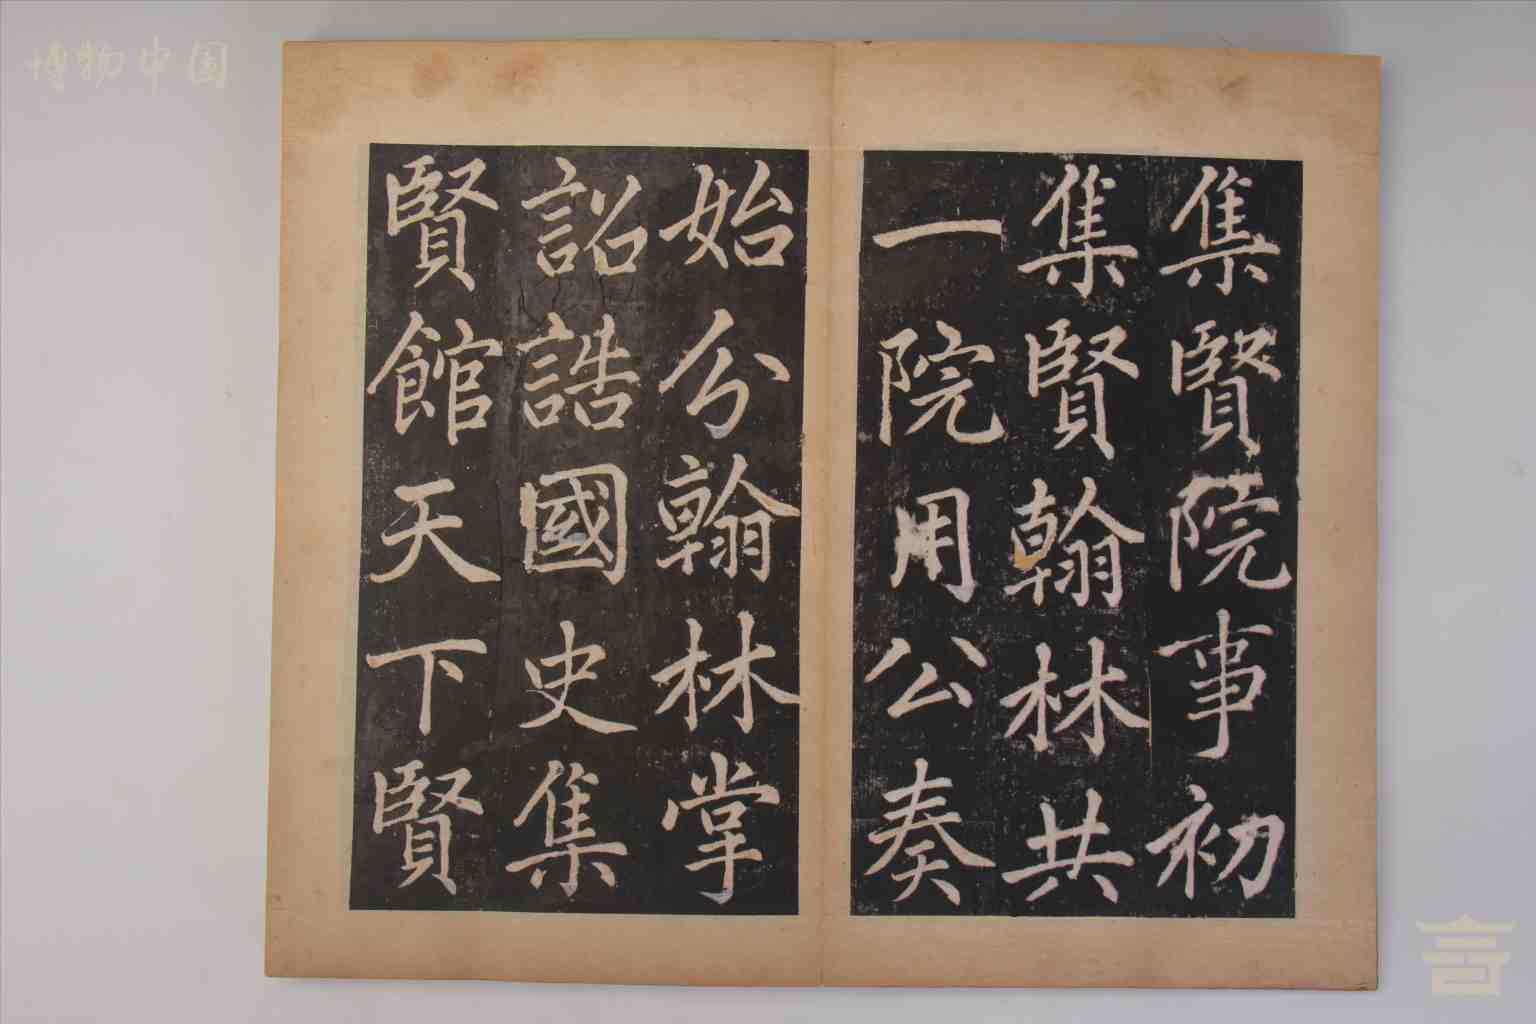 集賢院事初
集賢翰林共
一院用公奏
始分翰林掌
詔誥國史集
賢館天下賢
博物中国